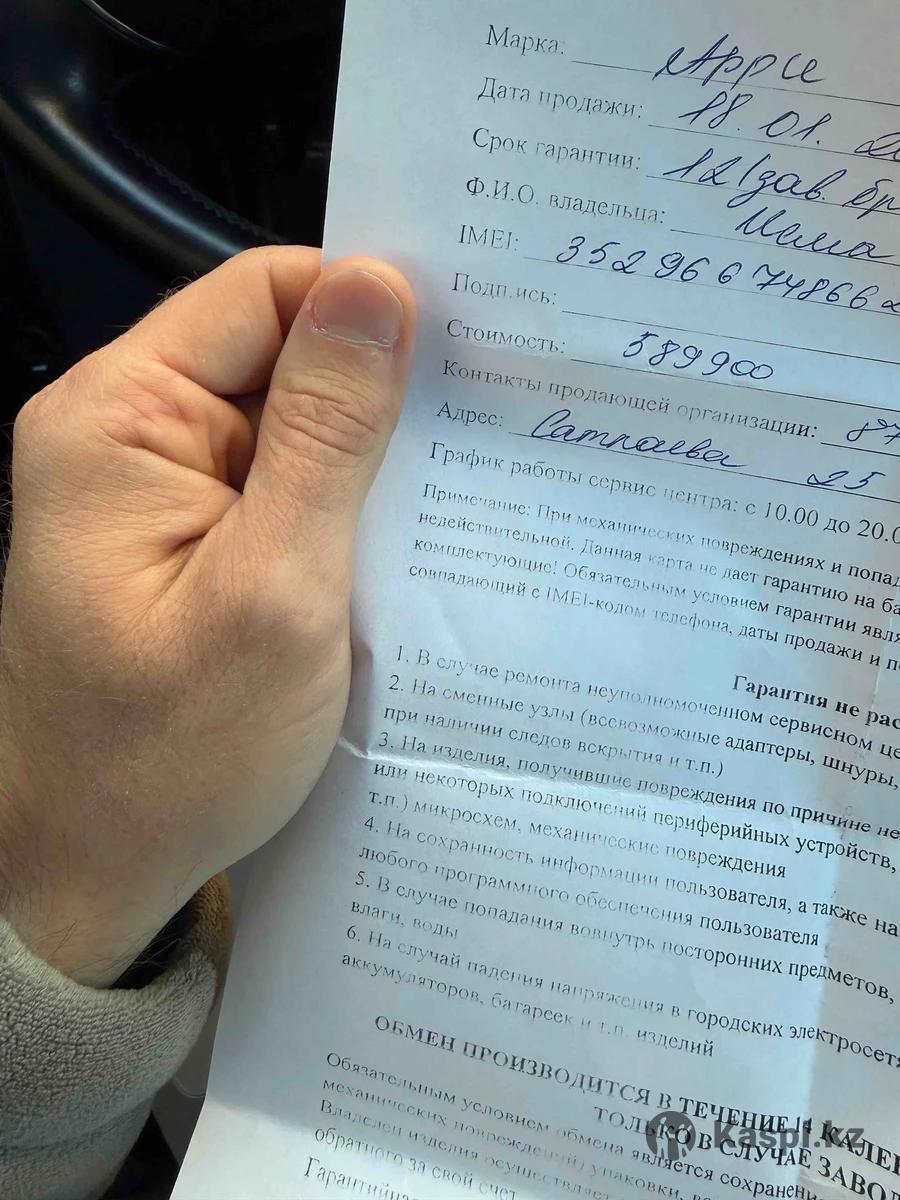 Марка: Apple
Дата продажи: 18.01.
Срок гарантии: 12 (зав. бр
Ф.И.О. владельца:
IMEI: 352966748662
Подпись:
Стоимость: 589900
Контакты продающей организации: 87
Адрес: Сатпаева 25
График работы сервис центра: с 10.00 до 20.0
Примечание: При механических повреждениях и попад
недействительной. Данная карта не дает гарантию на ба
комплектующие! Обязательным условием гарантии явля
совпадающий с IMEI-кодом телефона, даты продажи и п
Гарантия не рас
1. В случае ремонта неуполномоченном сервисном це
2. На сменные узлы (всевозможные адаптеры, шнуры,
при наличии следов вскрытия и т.п.)
3. На изделия, получившие повреждения по причине не
или некоторых подключений периферийных устройств,
т.п.) микросхем, механические повреждения
4. На сохранность информации пользователя, а также на
любого программного обеспечения пользователя
5. В случае попадания вовнутрь посторонних предметов,
влаги, воды
6. На случай падения напряжения в городских электросетя
аккумуляторов, батареек и т.п. изделий
ОБМЕН ПРОИЗВОДИТСЯ В ТЕЧЕНИЕ 14 КАЛЕН
ТОЛЬКО В СЛУЧАЕ ЗАВО
Обязательным условием обмена является сохранени
механических повреждений) упаковки,
Владелец изделия осуществляет
обратного за свой счет
Гарантийна
Kaspi.kz